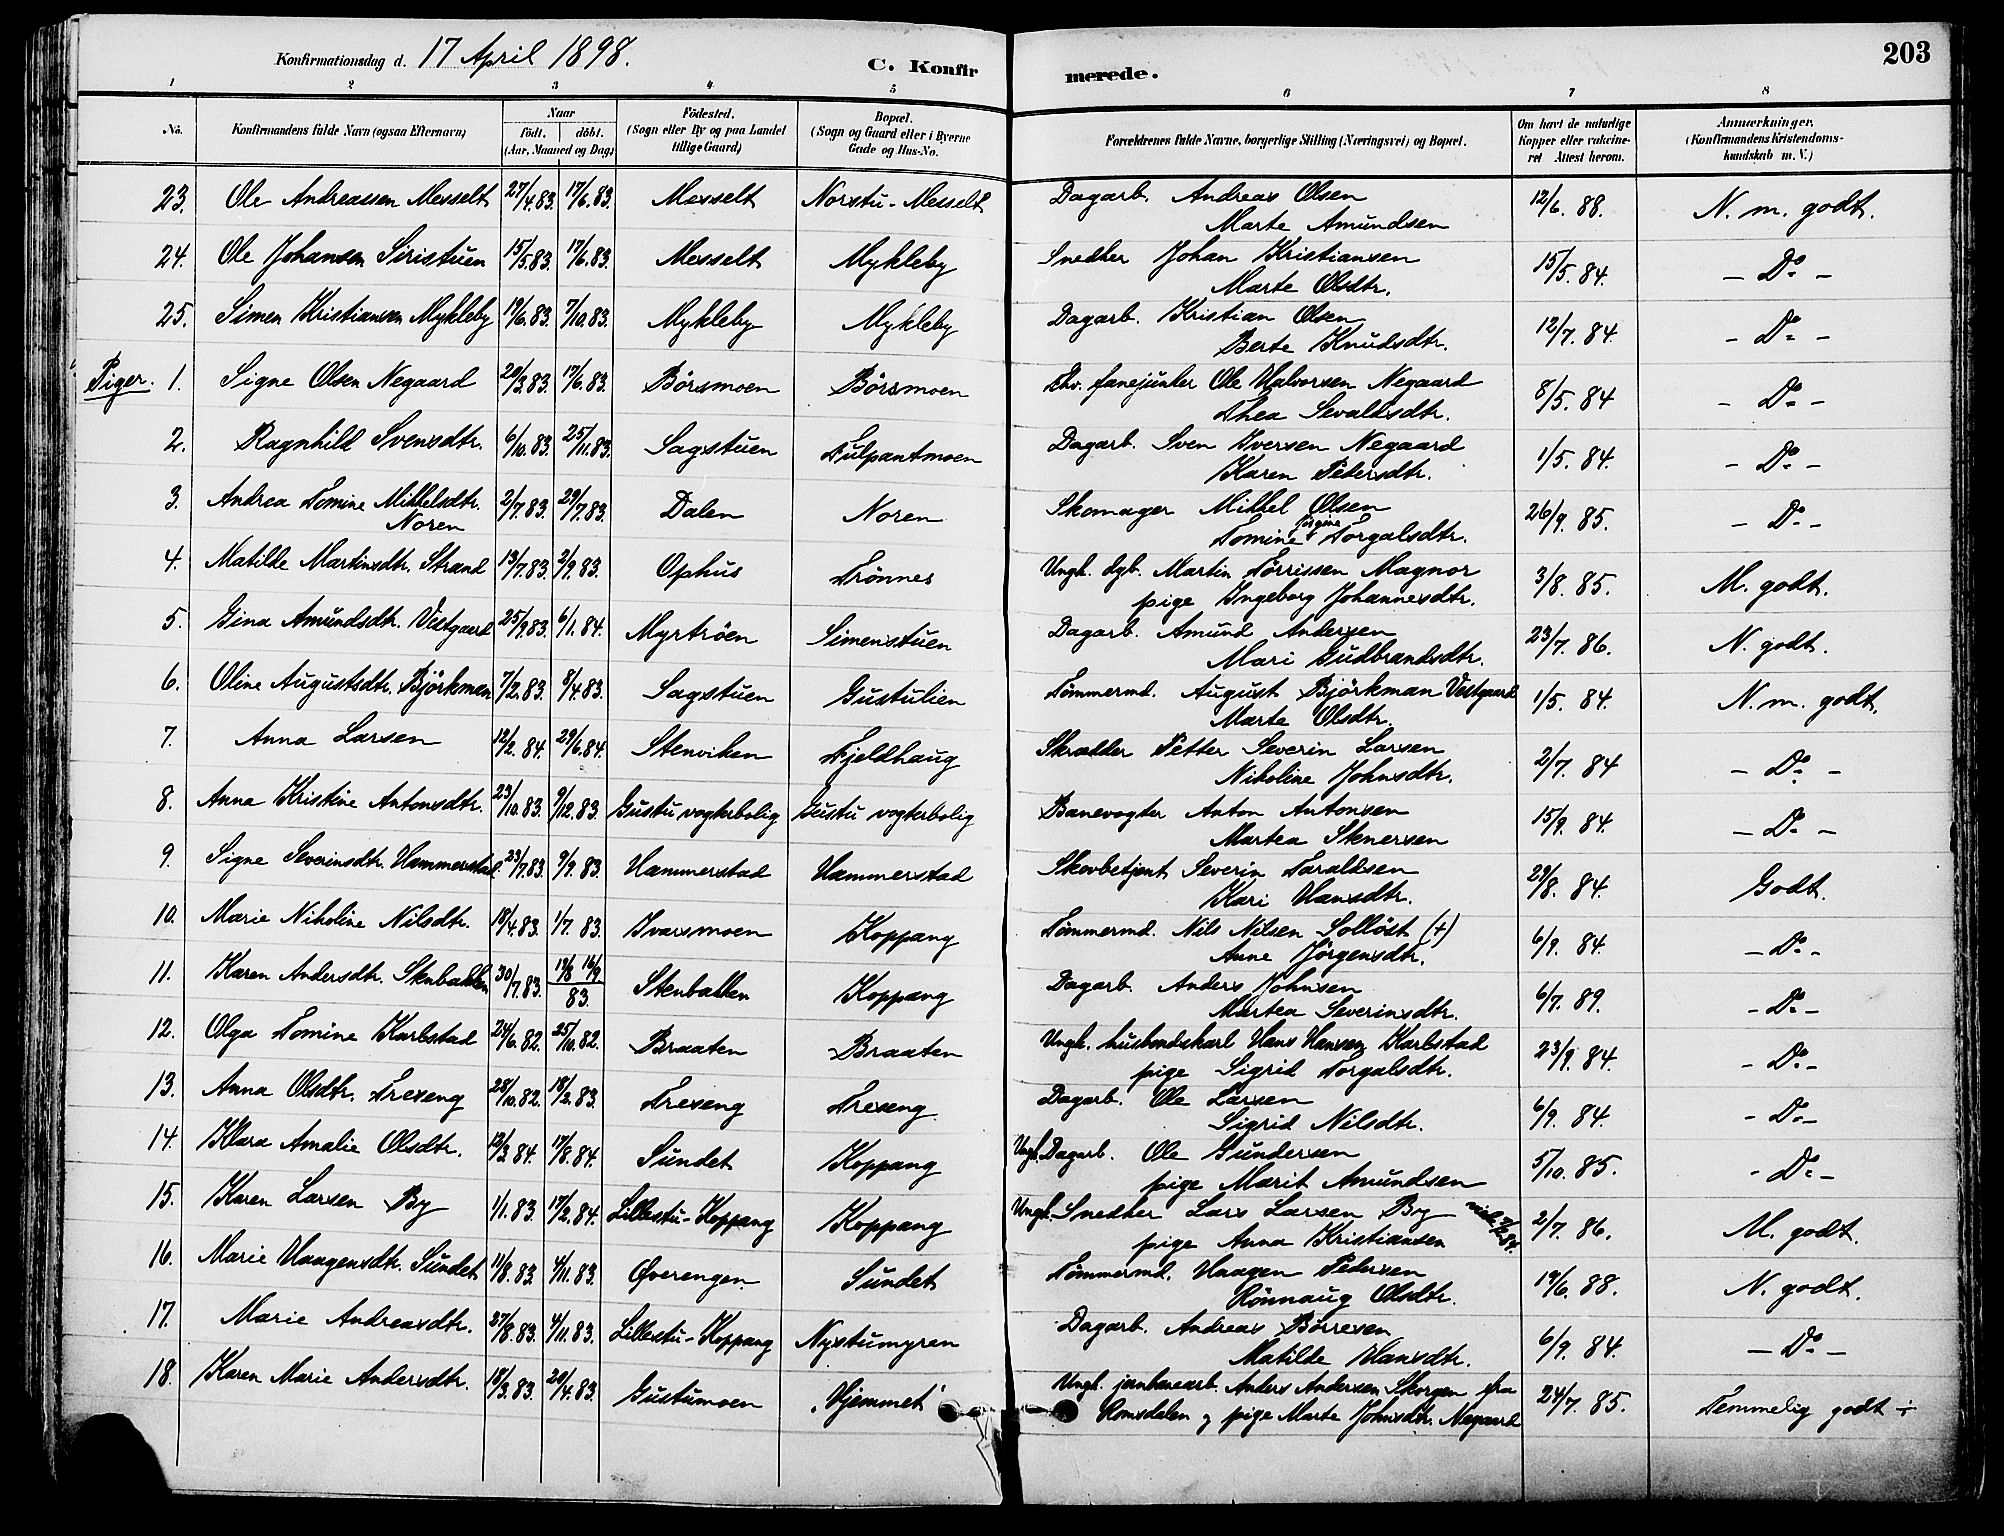 Konfirmationsdag d. 17 April 1898.
C. Konfirmerede.
203
1 2 3 4 5 6 7 8
No. Konfirmandens fulde Navn (ogsaa Efternavn) Naar født. døbt. (Aar, Maaned og Dag) Födested. (Sogn eller By og paa Landet tillige Gaard) Bopæl. (Sogn og Gaard eller i Byerne Gade og Hus-No. Forældrenes fulde Navne, borgerlige Stilling (Næringsvei) og Bopæl. Om havt de naturlige Kopper eller vakcineret Attest herom. Anmærkninger, (Konfirmandens Kristendomskundskab m. V.)
23. Ole Andreassen Messelt 27/4.83. 17/6.83. Messelt Norstu-Messelt Dagarb. Andreas Olsen 12/6. 88. N. m. godt.
Marte Amundsen
24. Ole Johansen Siristuen 15/5.83. 17/6.83. Messelt Mykleby Snedker Johan Kristiansen 15/5. 84. - Do -
Marte Olsdtr.
25. Simen Kristiansen Mykleby 19/6.83. 7/10.83. Mykleby Mykleby Dagarb. Kristian Olsen 12/7. 84. - Do -
Berte Knudsdtr.
Piger. 1. Signe Olsen Negaard 20/3.83. 17/6.83. Börsmoen Börsmoen Fhv. fanejunker Ole Halvorsen Negaard 8/5. 84 - Do -
Thea Sevaldsdtr.
2. Ragnhild Svensdtr. 6/10.83. 25/11.83. Sagstuen Tulpantmoen Dagarb. Sven Iversen Negaard 1/5. 84. - Do -
Karen Pedersdtr.
3. Andrea Tomine Mikkelsdtr. Noren 2/7.83. 29/7.83. Dalen Noren Skomager Mikkel Olsen 26/9. 85. - Do -
Tomine Jørgine Torgalsdtr.
4. Matilde Martinsdtr. Strand 13/7.83. 2/9.83. Ophus Trönnes Ungk. dgb. Martin Törrissen Magnor 3/8. 85. M. godt.
pige Ingeborg Johannesdtr.
5. Gina Amundsdtr. Vestgaard 25/9.83. 6/1.84. Myrtröen Simenstuen Dagarb. Amund Andersen 23/7. 86. N. godt.
Mari Gudbrandsdtr.
6. Oline Augustsdtr. Björkman 7/2.83. 8/4.83. Sagstuen Gustulien Tömmermd. August Björkman Vestgaard 1/5. 84. N. m. godt.
Marte Olsdtr.
7. Anna Larsen 12/2.84. 29/6.84. Stenviken Fjeldhaug Skrædder Petter Severin Larsen 2/7. 84 - Do -
Nikoline Johnsdtr.
8. Anna Kristine Antonsdtr. 23/10.83. 9/12.83. Gustu vogterbolig Gustu vogterbolig Banevogter Anton Antonsen 15/9. 84. - Do -
Martea Stenersen
9. Signe Severinsdtr. Hammerstad 23/7.83. 9/9.83. Hammerstad Hammerstad Skovbetjent Severin Taraldsen 29/8. 84. Godt.
Kari Hansdtr.
10. Marie Nikoline Nilsdtr. 18/4.83. 1/7.83. Ivarsmoen Koppang Tömmermd. Nils Nilsen Solløst (+) 6/9. 84. - Do -
Anne Jörgensdtr.
11. Karen Andersdtr. Stenbakken 30/7.83. 19/8 16/9 83. Stenbakken Koppang Dagarb. Anders Johnsen 6/7. 89. - Do -
Martea Severinsdtr.
12. Olga Tomine Karlstad 24/6.82. 25/10.82. Braaten Braaten Ungk. husbondskarl Hans Hansen Karlstad 23/9. 84. - Do -
pige Sigrid Torgalsdtr.
13. Anna Olsdtr. Treseng 28/10.82. 18/2.83. Treseng Treseng. Dagarb. Ole Larsen 6/9. 84. - Do -
Sigrid Nilsdtr.
14. Klara Amalie Olsdtr. 12/3.84. 17/8.84. Sundet Koppang Ungk. Dagarb. Ole Gundersen 5/10. 85. - Do -
pige Marit Amundsen
15. Karen Larsen By 1/1.83. 17/2.84. Lillestu-Koppang Koppang Ungk. Snedker Lars Larsen By 2/7. 86. M. godt.
pige Anna Kristiansen
16. Marie Haagensdtr. Sundet 11/8.83. 4/11.83. Øverengen Sundet Tömmermd. Haagen Pedersen 19/6. 88. N. godt.
Rönnaug Olsdtr.
17. Marie Andreasdtr. 27/8.83. 4/11.83. Lillestu-Koppang Nystumyren Dagarb. Andreas Börresen 6/9. 84. - Do -
Matilde Hansdtr.
18. Karen Marie Andersdtr. 18/3.83. 20/4.83. Gustumoen "Hjemmet" Ungk. jernbanearb. Anders Andersen Skorgen fra 24/7. 85. Temmelig godt ÷
Romsdalen og pige Marte Johnsdtr. Negaard